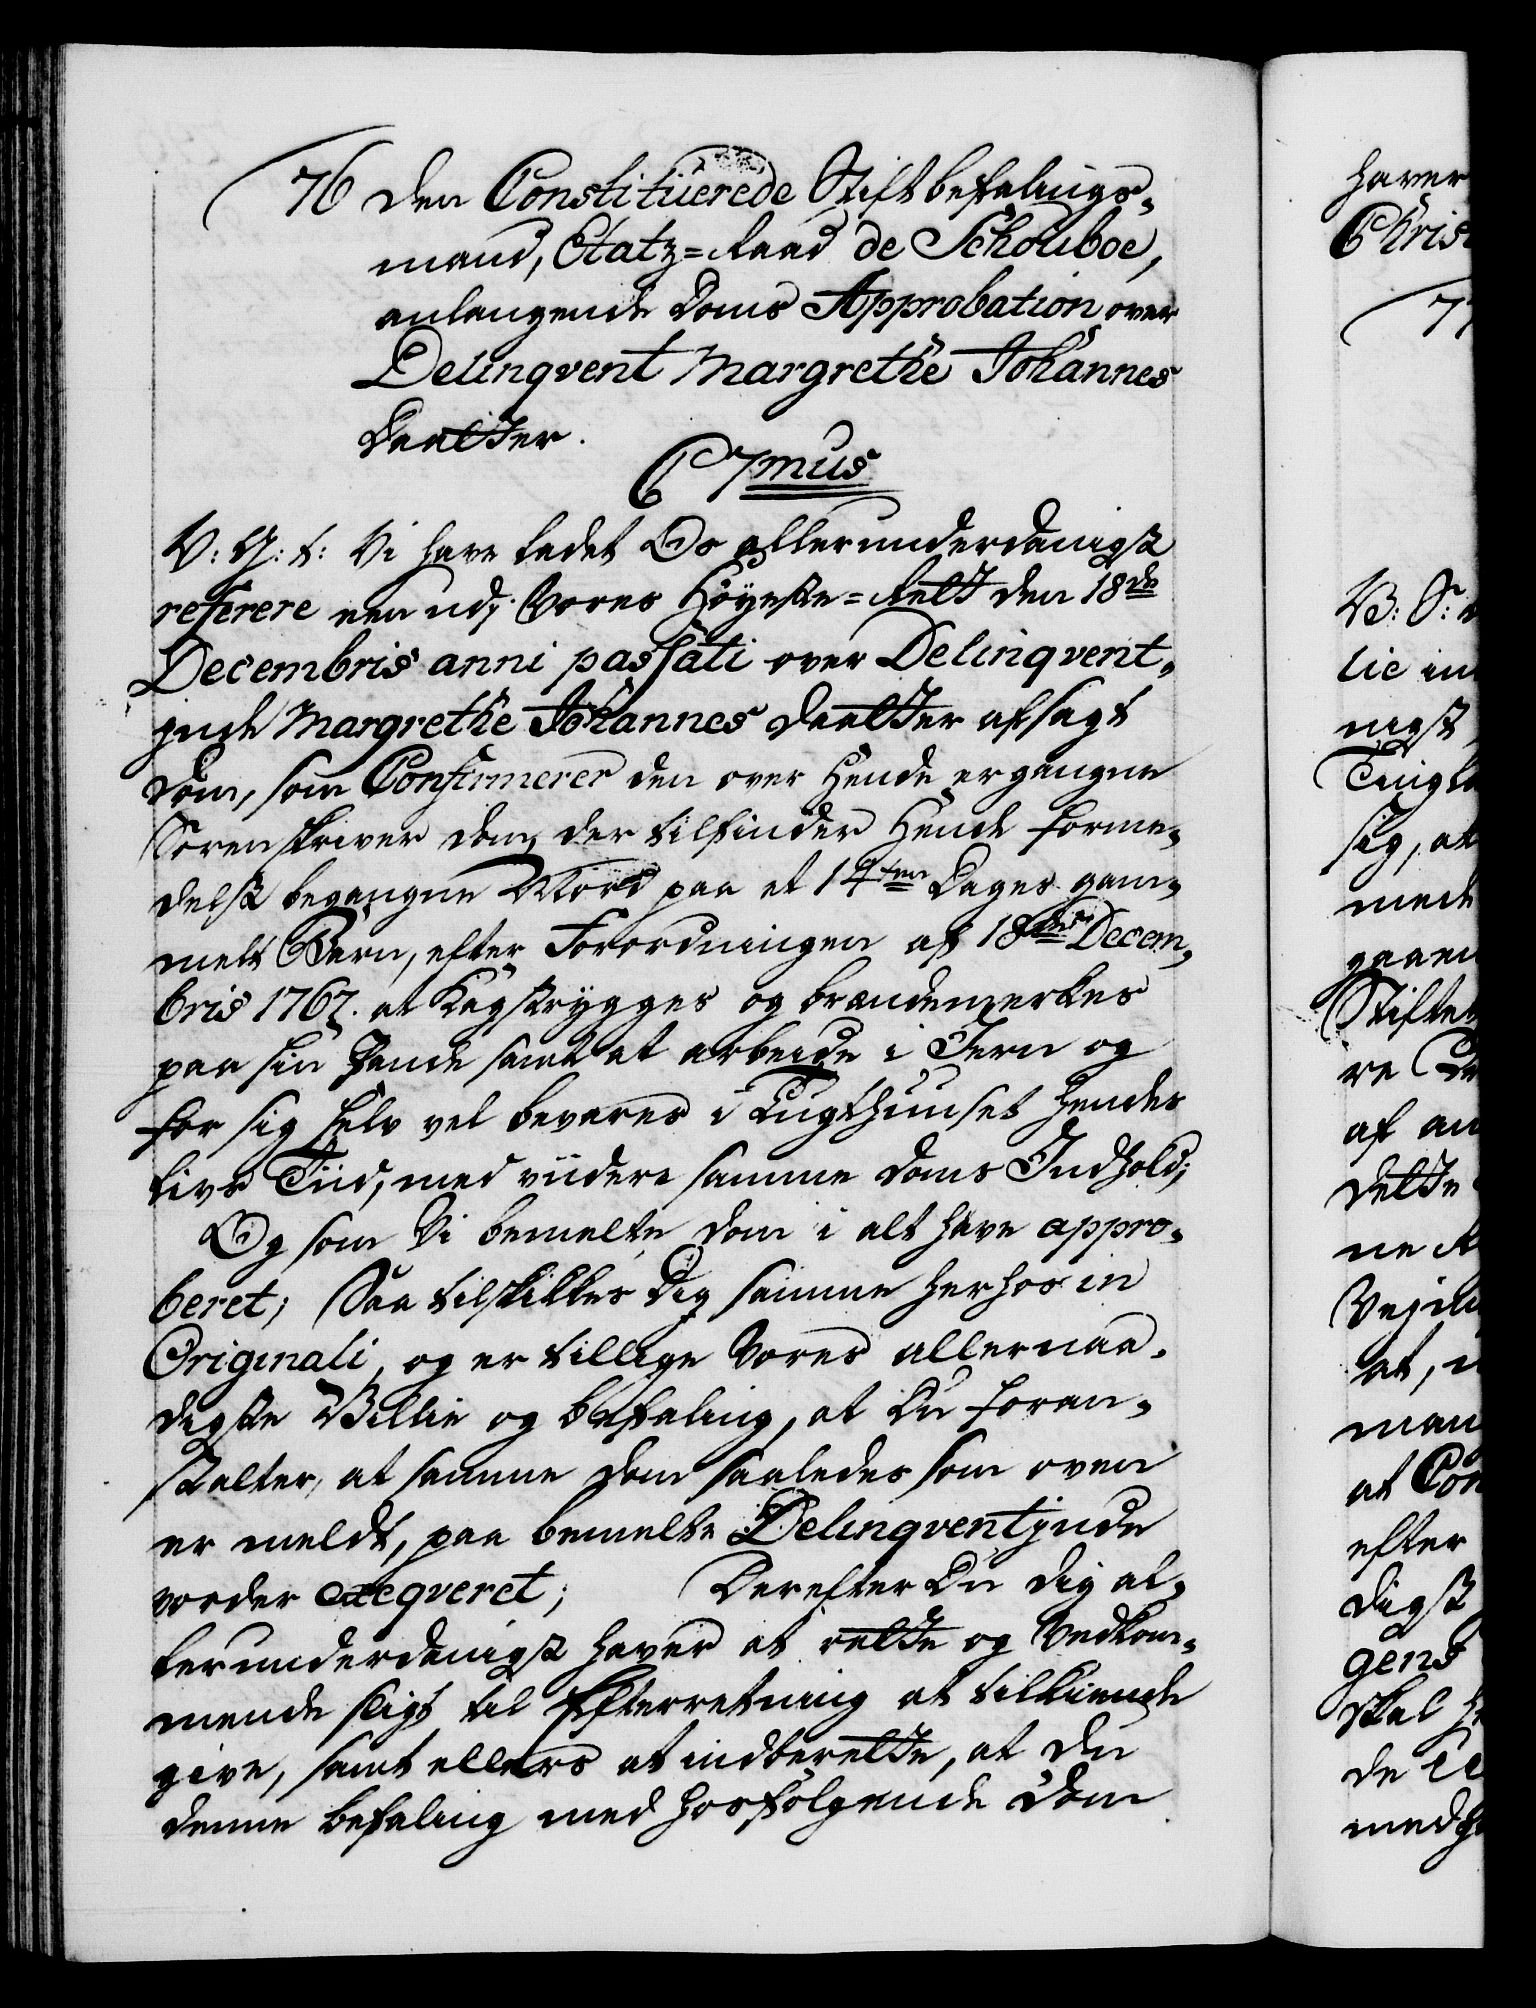 76 Den Constituerede Stiftbefalings-
mand, Etatz-Raad de Schouboe,
anlangende Doms Approbation over
Delinqvent Margrethe Johannes
Daatter.
C 7mus
V: G: T: Vi have ladet Os allerunderdanigst
referere een ud i Vores Høyeste-Rett den 18de
Decembris anni passati over Delinqvent-
inde Margrethe Johannes Daatter afsagt
Dom, som Confirmerer den over Hende ergangne
Sorenskriver Dom, der tilfinder Hende forme-
delst begangne Mord paa et 14ten Dages gam-
melt Barn, efter Forordningen af 18de Decem-
bris 1767. at Kagstrygges og brændemerkes
paa sin Pande samt at arbeide i Jern og
for sig selv vel bevares i Tugthuuset Hendes
Livs Tiid, med viidere samme Doms Indhold;
Og som Vi bemelte Dom i alt have appro-
beret; Saa tilskikkes Dig samme herhos in
Originali, og er tillige Vores allernaa-
digste Villie og befaling, at Du foran-
stalter, at samme Dom saaledes som oven
er meldt, paa bemelte Delinqventinde
vorder exeqveret; Derefter Du Dig al-
lerunderdanigst haver at rette og Vedkom-
mende sligt til Efterretning at tilkiende
give, samt ellers at indberette, at Du
denne befaling med hosfølgende Dom
haver
Chris
77
V: G:
lie in
nigst
Tugt
sig, at
mede
gaaen
Stiftet
re
af an
dette
ne
Vejn
at,
man
at Con
efter
digst
gens
skal
de
medh